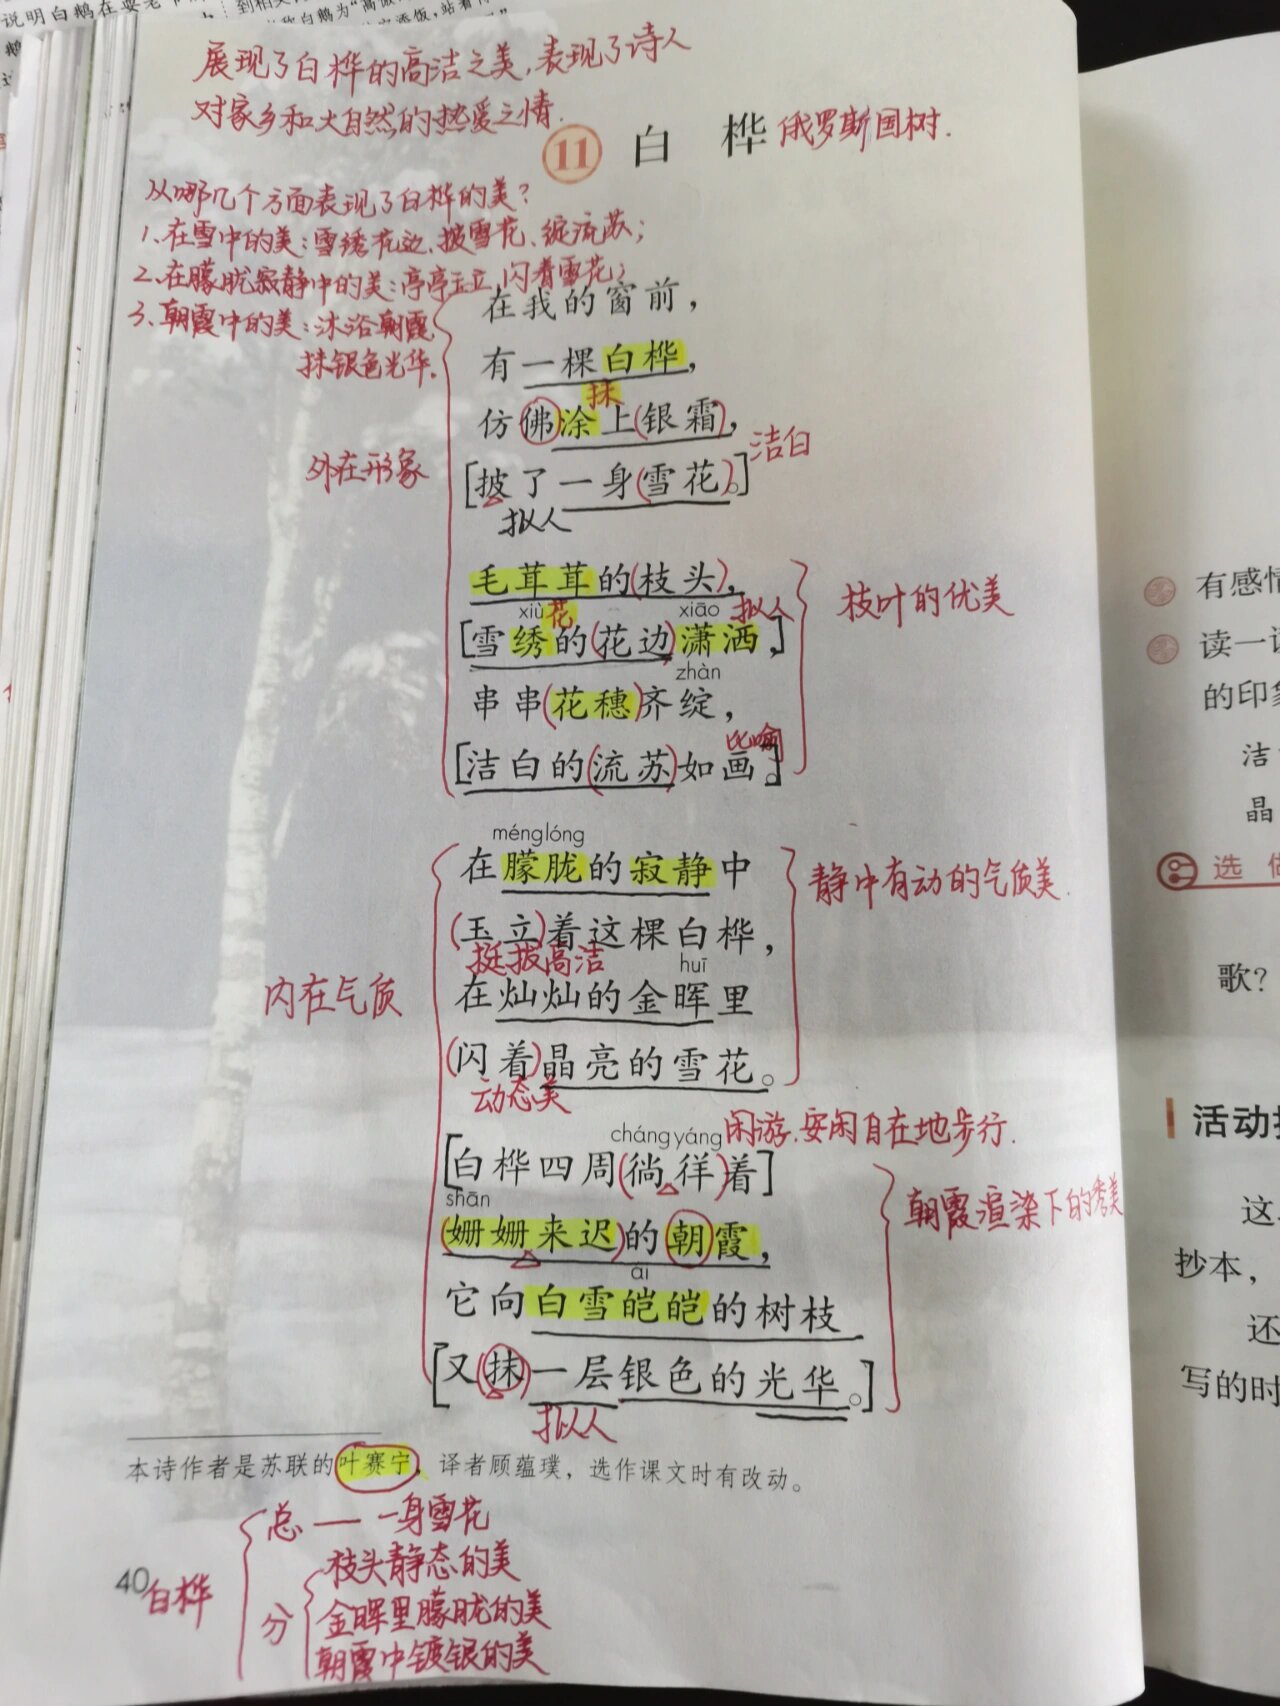 说明白鹅在耍老
展现了白桦的高洁之美,表现了诗人
对家乡和大自然的热爱之情.
11 白 桦 俄罗斯国树.
从哪几个方面表现了白桦的美?
1、在雪中的美:雪绣花边、披雪花、绽流苏;
2、在朦胧寂静中的美:亭亭玉立,闪着雪花;
3、朝霞中的美:沐浴朝霞
抹银色光华.
在我的窗前,
有一棵白桦,
抹
仿佛涂上(银霜),
洁白
外在形象
[披了一身(雪花)。]
拟人
毛茸茸的(枝头),
枝叶的优美
xiù 花 xiāo 拟人
[雪绣的(花边)潇洒,]
zhàn
串串(花穗)齐绽,
比喻
[洁白的(流苏)如画。]
ménglóng
在朦胧的寂静中
静中有动的气质美.
(玉立)着这棵白桦,
挺拔高洁 huī
内在气质
在灿灿的金晖里
(闪着)晶亮的雪花。
动态美
chángyáng 闲游.安闲自在地步行.
[白桦四周(徜徉)着]
shān
朝霞渲染下的秀美
(姗姗来迟)的朝霞,
ái
它向白雪皑皑的树枝
[又(抹)一层银色的光华。]
拟人
本诗作者是苏联的叶赛宁,译者顾蕴璞,选作课文时有改动。
总 — 一身雪花
枝头静态的美
40 白桦
分 金晖里朦胧的美
朝霞中镀银的美
有感情
读一读
的印象
洁
晶
选 做
歌?
活动
这
抄本,
还
写的时